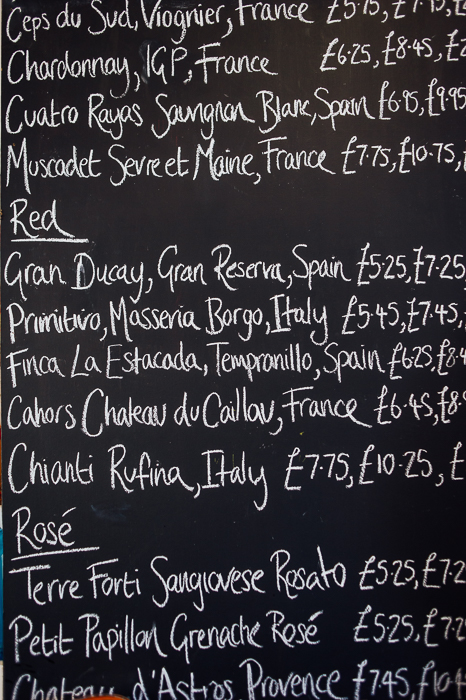 Ceps du Sud, Viognier, France £5.75, £7.75, £
Chardonnay, IGP, France £6.25, £8.45, £
Cuatro Rayas Sauvignon Blanc, Spain £6.95, £9.95
Muscadet Sevre et Maine, France £7.75, £10.75,
Red
Gran Ducay, Gran Reserva, Spain £5.25, £7.25
Primitivo, Masseria Borgo, Italy £5.45, £7.45,
Finca La Estacada, Tempranillo, Spain £6.25, £8.4
Cahors Chateau du Caillau, France £6.45, £8.
Chianti Rufina, Italy £7.75, £10.25, £
Rosé
Terre Forti Sangiovese Rosato £5.25, £7.2
Petit Papillon Grenache Rosé £5.25, £7.2
Chateau d'Astros Provence £7.45, £10.4